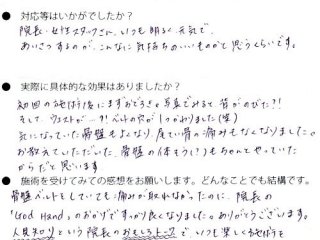 ● 対応等はいかがでしたか？
院長・女性スタッフさん、いつも明るく元気で、
あいさつするのが、こんなに気持ちのいいものかと思うくらいです。
● 実際に具体的な効果はありましたか？
初回の施術後にまずおどろき。写真でみると背がのびた?!
そして、ウエストが…?! ベルトの穴が1つかわりました(笑)
気になっていた骨盤もよくなり、尾てい骨の痛みもなくなりました。
お教えていただいた、骨盤の体そう(?)もちゃんとやっていた
からだと思います
● 施術を受けてみての感想をお願いします。どんなことでも結構です。
骨盤ベルトをしていても痛みが取れなかったのに、院長の
「God Hand」のおかげですっかり良くなりました。ありがとうございます。
人見知りという院長のおもしろトークでいつも楽しく施術を